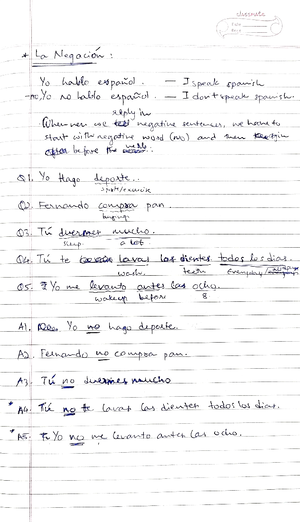 classmate
Date
Page
* La Negación :
Yo hablo español. — I speak spanish
Yo no hablo español. — I don't speak spanish.
reply in
When ever we negative sentences, we have to
start with negative word (no) and then
before the verb.
Q1. Yo Hago deporte.
sports/exercise
Q2. Fernando compra pan.
buying
Q3. Tú duermes mucho.
sleep a lot
Q4. Tú te lavas los dientes todos los dias.
wash teeth everyday/
Q5. Yo me levanto antes las ocho.
wakeup before 8
A1. Yo no hago deporte.
A2. Fernando no compra pan.
A3. Tú no duermes mucho
* A4. Tú no te lavas los dientes todos los dias.
* A5. Yo no me levanto antes las ocho.